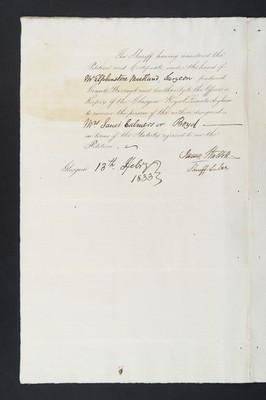 The Sheriff having considered the
Petition and Certificate under the hand of
Mr Elphinstone Maitland Surgeon produced
Grants Warrant and Authority to the Officer or
Keepers of the Glasgow Royal Lunatic Asylum
to receive the person of the within designed
Mrs Janet Calmers or Boyd
in terms of the Statutes referred to in the
Petition.
Glasgow 13th Febry 1833
Sheriff